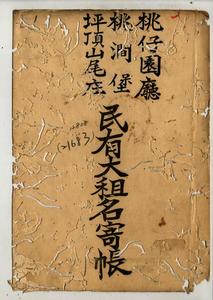 桃仔園廳
桃澗堡
坪頂山尾庄
民有大租名寄帳